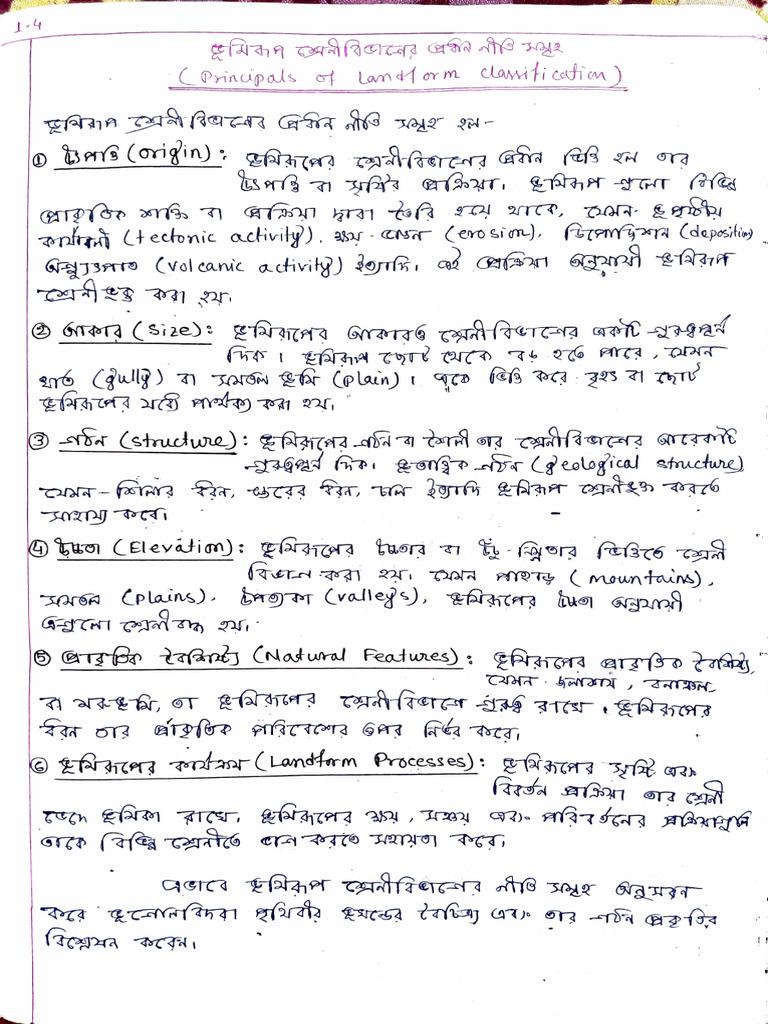 1-4
ভূমিরূপ শ্রেনীবিভাগের প্রধান নীতি সমূহ
(Principals of Landform Classification)
ভূমিরূপ শ্রেনীবিভাগের প্রধান নীতি সমূহ হল-
① উৎপত্তি (Origin): ভূমিরূপের শ্রেনীবিভাগের প্রধান ভিত্তি হল তার
উৎপত্তি বা সৃষ্টির প্রক্রিয়া। ভূমিরূপ গুলো বিভিন্ন
প্রাকৃতিক শক্তি বা প্রক্রিয়া দ্বারা তৈরি হয়ে থাকে, যেমন- ভূপৃষ্ঠীয়
কার্যাবলী (tectonic activity), ক্ষয় (erosion), ডিপোজিশন (deposition)
অগ্ন্যুৎপাত (volcanic activity) ইত্যাদি। এই প্রক্রিয়া অনুযায়ী ভূমিরূপ
শ্রেনীভুক্ত করা হয়।
② আকার (Size): ভূমিরূপের আকারও শ্রেনীবিভাগের একটি গুরুত্বপূর্ন
দিক। ভূমিরূপ ছোট থেকে বড় হতে পারে, যেমন
খাত (gully) বা সমতল ভূমি (plain)। একে ভিত্তি করে বৃহৎ বা ছোট
ভূমিরূপের মধ্যে পার্থক্য করা হয়।
③ গঠন (structure): ভূমিরূপের গঠন বা শৈলী তার শ্রেনীবিভাগের আরেকটি
গুরুত্বপূর্ন দিক। ভূতাত্ত্বিক গঠন (geological structure)
যেমন- শিলার ধরন, স্তরের ধরন, ঢাল ইত্যাদি ভূমিরূপ শ্রেনীভুক্ত করতে
সাহায্য করে।
④ উচ্চতা (Elevation): ভূমিরূপের উচ্চতার বা উঁচু-নিম্নতার ভিত্তিতে শ্রেনী
বিভাগ করা হয়। যেমন পাহাড় (mountains),
সমতল (plains), উপত্যকা (valleys), ভূমিরূপের উচ্চতা অনুযায়ী
এগুলো শ্রেনীবদ্ধ হয়।
⑤ প্রাকৃতিক বৈশিষ্ট্য (Natural Features): ভূমিরূপের প্রাকৃতিক বৈশিষ্ট্য,
যেমন জলাশয়, বনাঞ্চল
বা মরুভূমি, তা ভূমিরূপের শ্রেনীবিভাগে গুরুত্ব রাখে। ভূমিরূপের
ধরন তার প্রাকৃতিক পরিবেশের উপর নির্ভর করে।
⑥ ভূমিরূপের কার্যক্রম (Landform Processes): ভূমিরূপের সৃষ্টি এবং
বিবর্তন প্রক্রিয়া তার শ্রেনী
ভেদে ভূমিকা রাখে। ভূমিরূপের ক্ষয়, সঞ্চয় এবং পরিবর্তনের প্রক্রিয়াগুলি
তাকে বিভিন্ন শ্রেনীতে ভাগ করতে সহায়তা করে।
এভাবে ভূমিরূপ শ্রেনীবিভাগের নীতি সমূহ অনুসরন
করে ভূগোলবিদরা পৃথিবীর ভূখন্ডের বৈচিত্র্য এবং তার গঠন প্রকৃতির
বিশ্লেষন করেন।